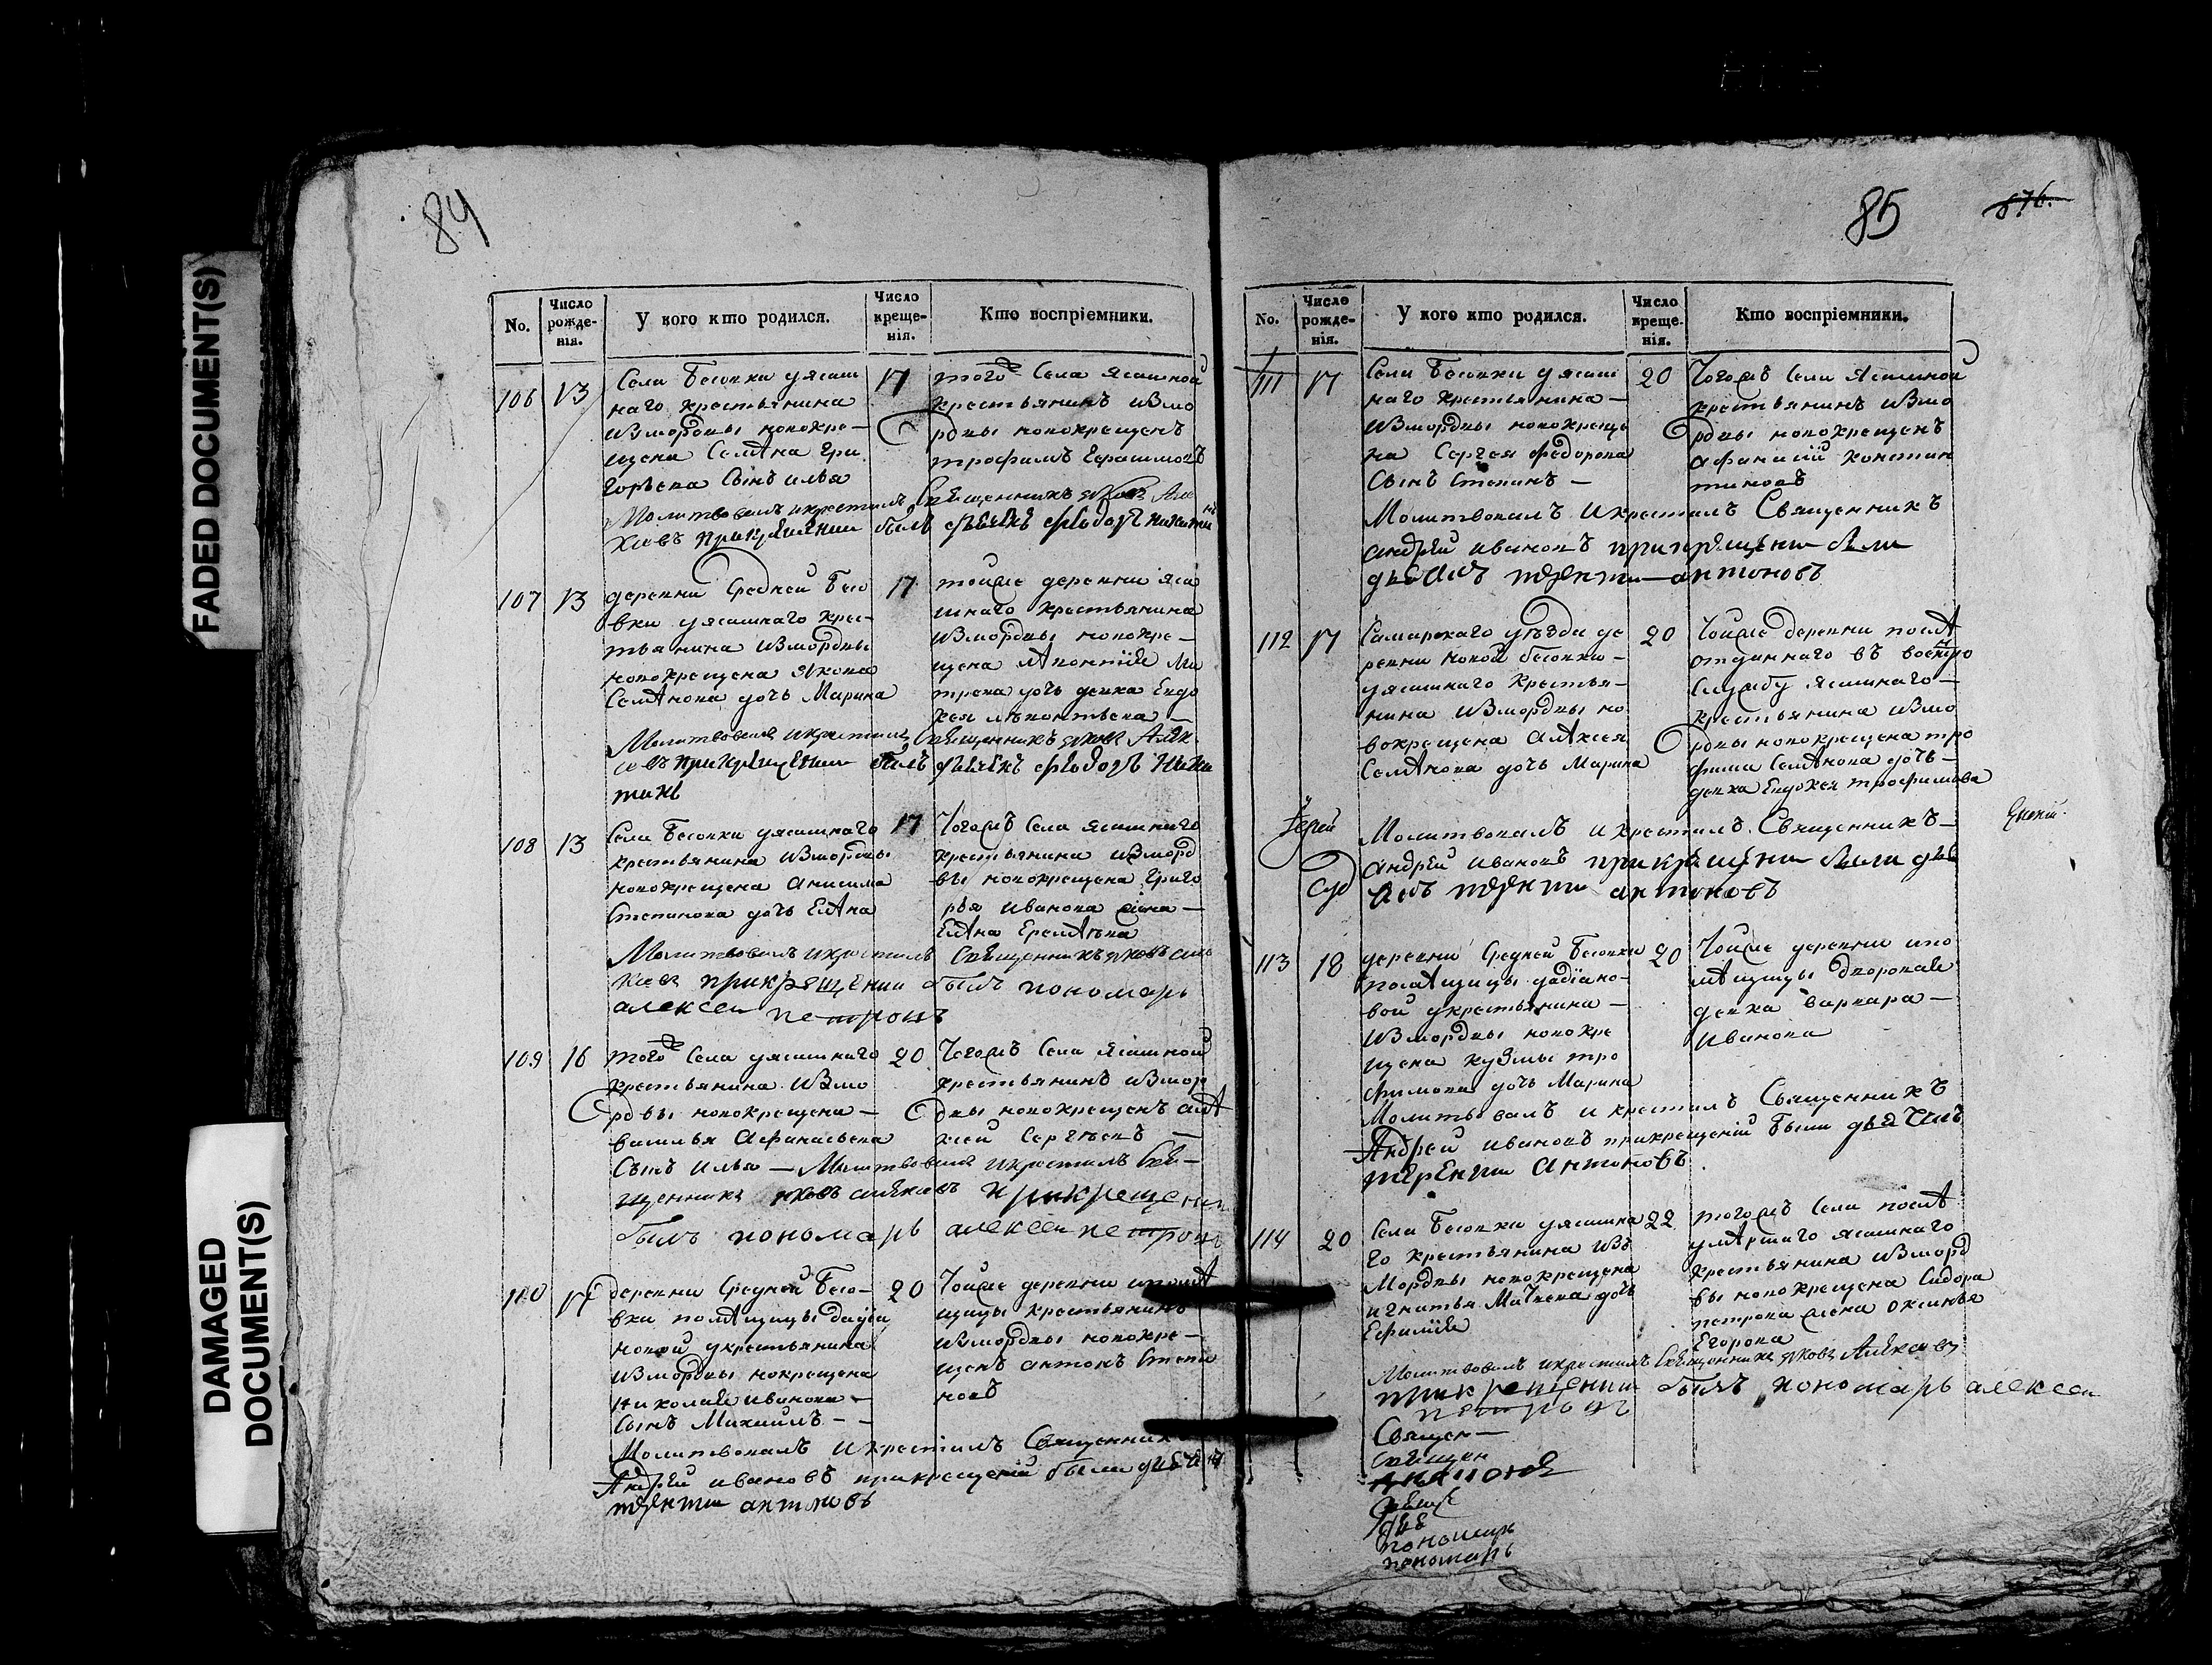 84
No.
Число рожде- нія.
У кого кто родился.
Число креще- нія.
Кто воспріемники.
106 13
Села Бесовки уясаш
наго крестьянина
измордвы новокре—
щена Семѣна Гри
горьева Сынъ илья
17
того Села Ясашной
крестьянинъ измо
рдвы новокрещенъ
трофимъ
Молитвовалъ икрестилъ Священникъ яковъ Але
ѯѣевъ прикрещении былъ дьячекъ фѣодоръ никити
107 13
деревни Средней Бесо
вки уясашнаго крес-
тьянина измордвы
новокрещена якова
Семѣнова дочь Марина
17
тойже деревни яса
шнаго крестьянина
измордвы новокре—
щена
дочь девка Евдо
кея
Молитвовалъ икрестилъ Священникъ яковъ
прикрещении былъ дьячекъ фѣодоръ Ники
тинъ
108 13
Села Бесовки уясашнаго
крестьянина измордвы
новокрещена анисима
Степанова дочь Елѣна
17
Тогожъ Села ясашнаго
крестьянина изморд
вы новокрещена Григо
рья иванова жена—
Елѣна Еремѣева
Молитвовалъ икрестилъ Священникъ яковъ
прикрещении былъ пономарь
алексеи петровъ
109 16
того Села уясашнаго
крестьянина измо
рдвы новокрещена—
василья Афанасьева
Сынъ илья—
20
Тогожъ Села Ясашной
крестьянинъ измор
двы новокрещенъ алѣ
ксей Сергѣевъ—
Молитвовалъ икрестилъ Свя—
щенникъ яковъ прикрещении
былъ пономарь алексеи петровъ
110 17
деревни Средней Бесо—
вки помѣщицы
новой укрестьянина
измордвы новокрещена
Николая иванова—
Сынъ Михаилъ— —
20
Тойже деревни ипомѣ
щицы крестьянинъ
измордвы новокре—
щенъ антонъ Степа
новъ
Молитвовалъ икрестилъ Священникъ
Андрей ивановъ прикрещеній были дьячикъ
терентии антоновъ
85
876.
No.
Число рожде- нія.
У кого кто родился.
Число креще- нія.
Кто воспріемники.
111 17
Села Бесовки уясаш
наго крестьянина—
измордвы новокреще
на Сергея Федорова
Сынъ Степанъ—
20
Тогожъ Села Ясашной
крестьянинъ измо
рдвы новокрещенъ
афанасій констан
тиновъ
Молитвовалъ икрестилъ Священникъ
андрей ивановъ прикрещени были
дьячикъ терентии—антоновъ
112 17
Самарскаго уѣзда де
ревни новой бесовки—
уясашнаго крестья—
нина измордвы но
вокрещена алѣксея
Семѣнова дочь Марина
20
Тойже деревни послѣ
отданнаго въ военную
Службу Ясашнаго—
крестьянина измо
рдвы новокрещена тро
фима Семѣнова дочь—
девка Евдокея трофимова
Iерей
Молитвовалъ икрестилъ. Священникъ—
андрей ивановъ прикрещени были дьяч
терентии антоновъ
113 18
деревни Средней Бесовки
помѣщицы
вой укрестьянина—
измордвы новокре
щена кузмы тро
фимова дочь Марина
20
Тойже деревни ипо
мѣщицы дворовая
девка варвара—
иванова
Молитвовалъ и крестилъ Священникъ
Андрей ивановъ прикрещеній были дьячикъ
терентии Антоновъ
114 20
Села Бесовки уясашна
го крестьянина изъ
Мордвы новокрещена
игнатья дочь
Ефимія
22
тогожъ Села послѣ
умѣршаго ясашнаго
крестьянина изморд
вы новокрещена Сидора
петрова жена оксинья
Егорова
Молитвовалъ икрестилъ Священникъ яковъ
прикрещении былъ пономарь алексеи
петровъ
Священ—
Священ
пономарь
пономарь
FADED DOCUMENT(S)
DAMAGED DOCUMENT(S)